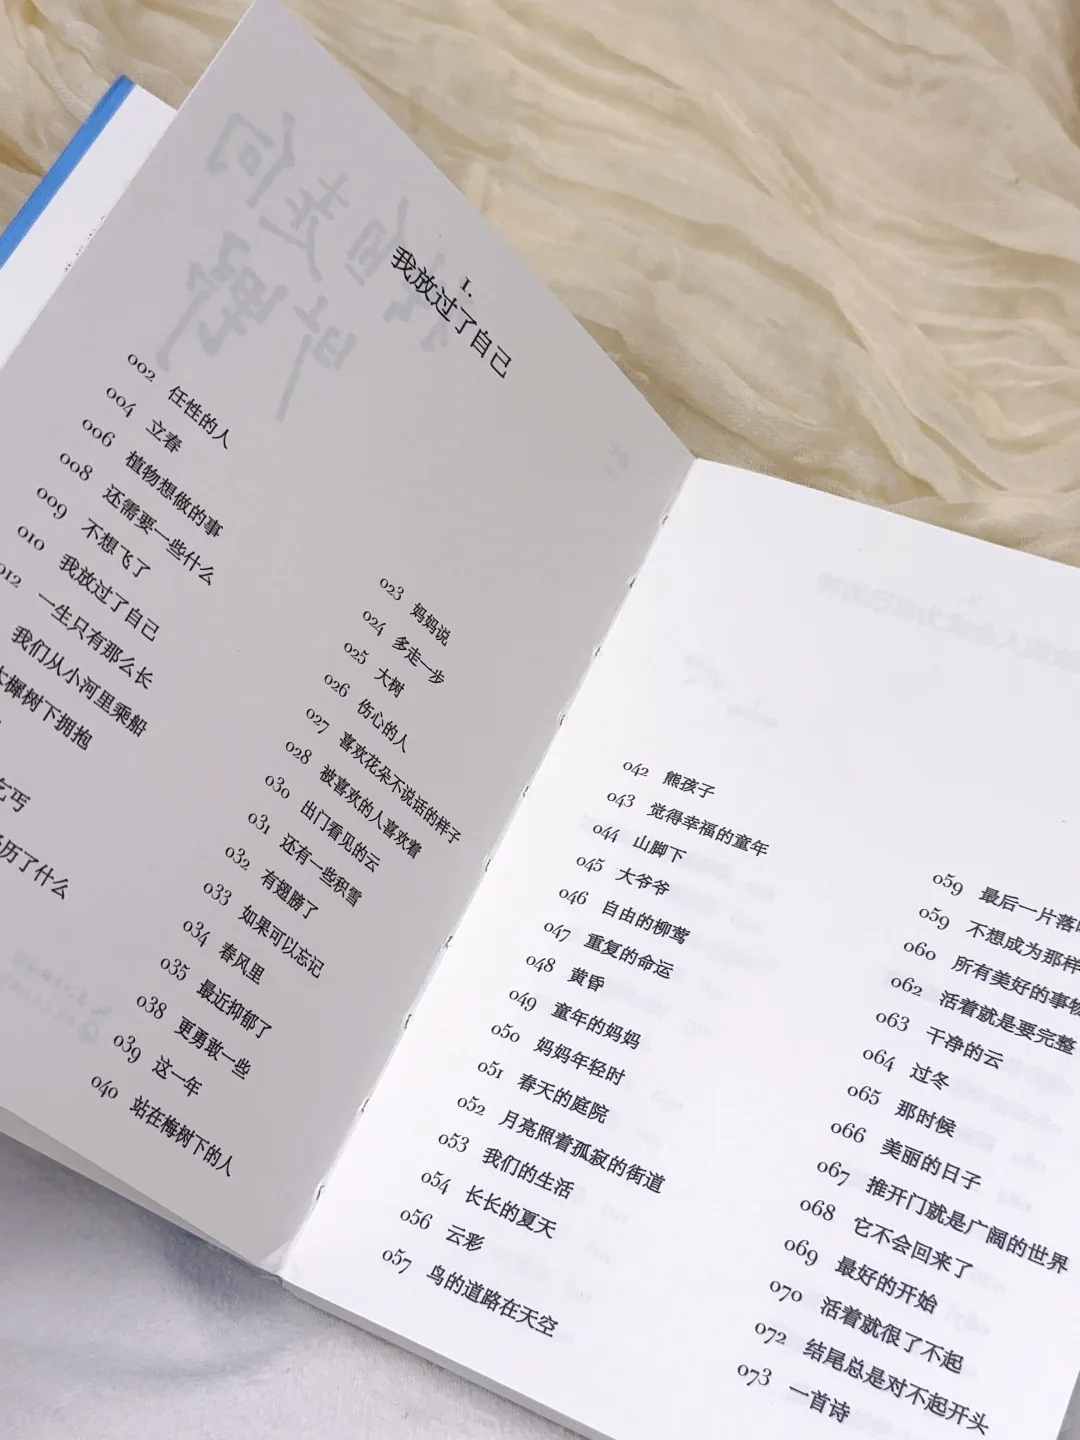 I.
我放过了自己
002 任性的人
004 立春
006 植物想做的事
008 还需要一些什么
009 不想飞了
010 我放过了自己
012 一生只有那么长
我们从小河里乘船
树下拥抱
乞丐
历了什么
023 妈妈说
024 多走一步
025 大树
026 伤心的人
027 喜欢花朵不说话的样子
028 被喜欢的人喜欢着
030 出门看见的云
031 还有一些积雪
032 有翅膀了
033 如果可以忘记
034 春风里
035 最近抑郁了
038 更勇敢一些
039 这一年
040 站在梅树下的人
042 熊孩子
043 觉得幸福的童年
044 山脚下
045 大爷爷
046 自由的柳莺
047 重复的命运
048 黄昏
049 童年的妈妈
050 妈妈年轻时
051 春天的庭院
052 月亮照着孤寂的街道
053 我们的生活
054 长长的夏天
056 云彩
057 鸟的道路在天空
059 最后一片落
059 不想成为那样
060 所有美好的事物
062 活着就是要完整
063 干净的云
064 过冬
065 那时候
066 美丽的日子
067 推开门就是广阔的世界
068 它不会回来了
069 最好的开始
070 活着就很了不起
072 结尾总是对不起开头
073 一首诗